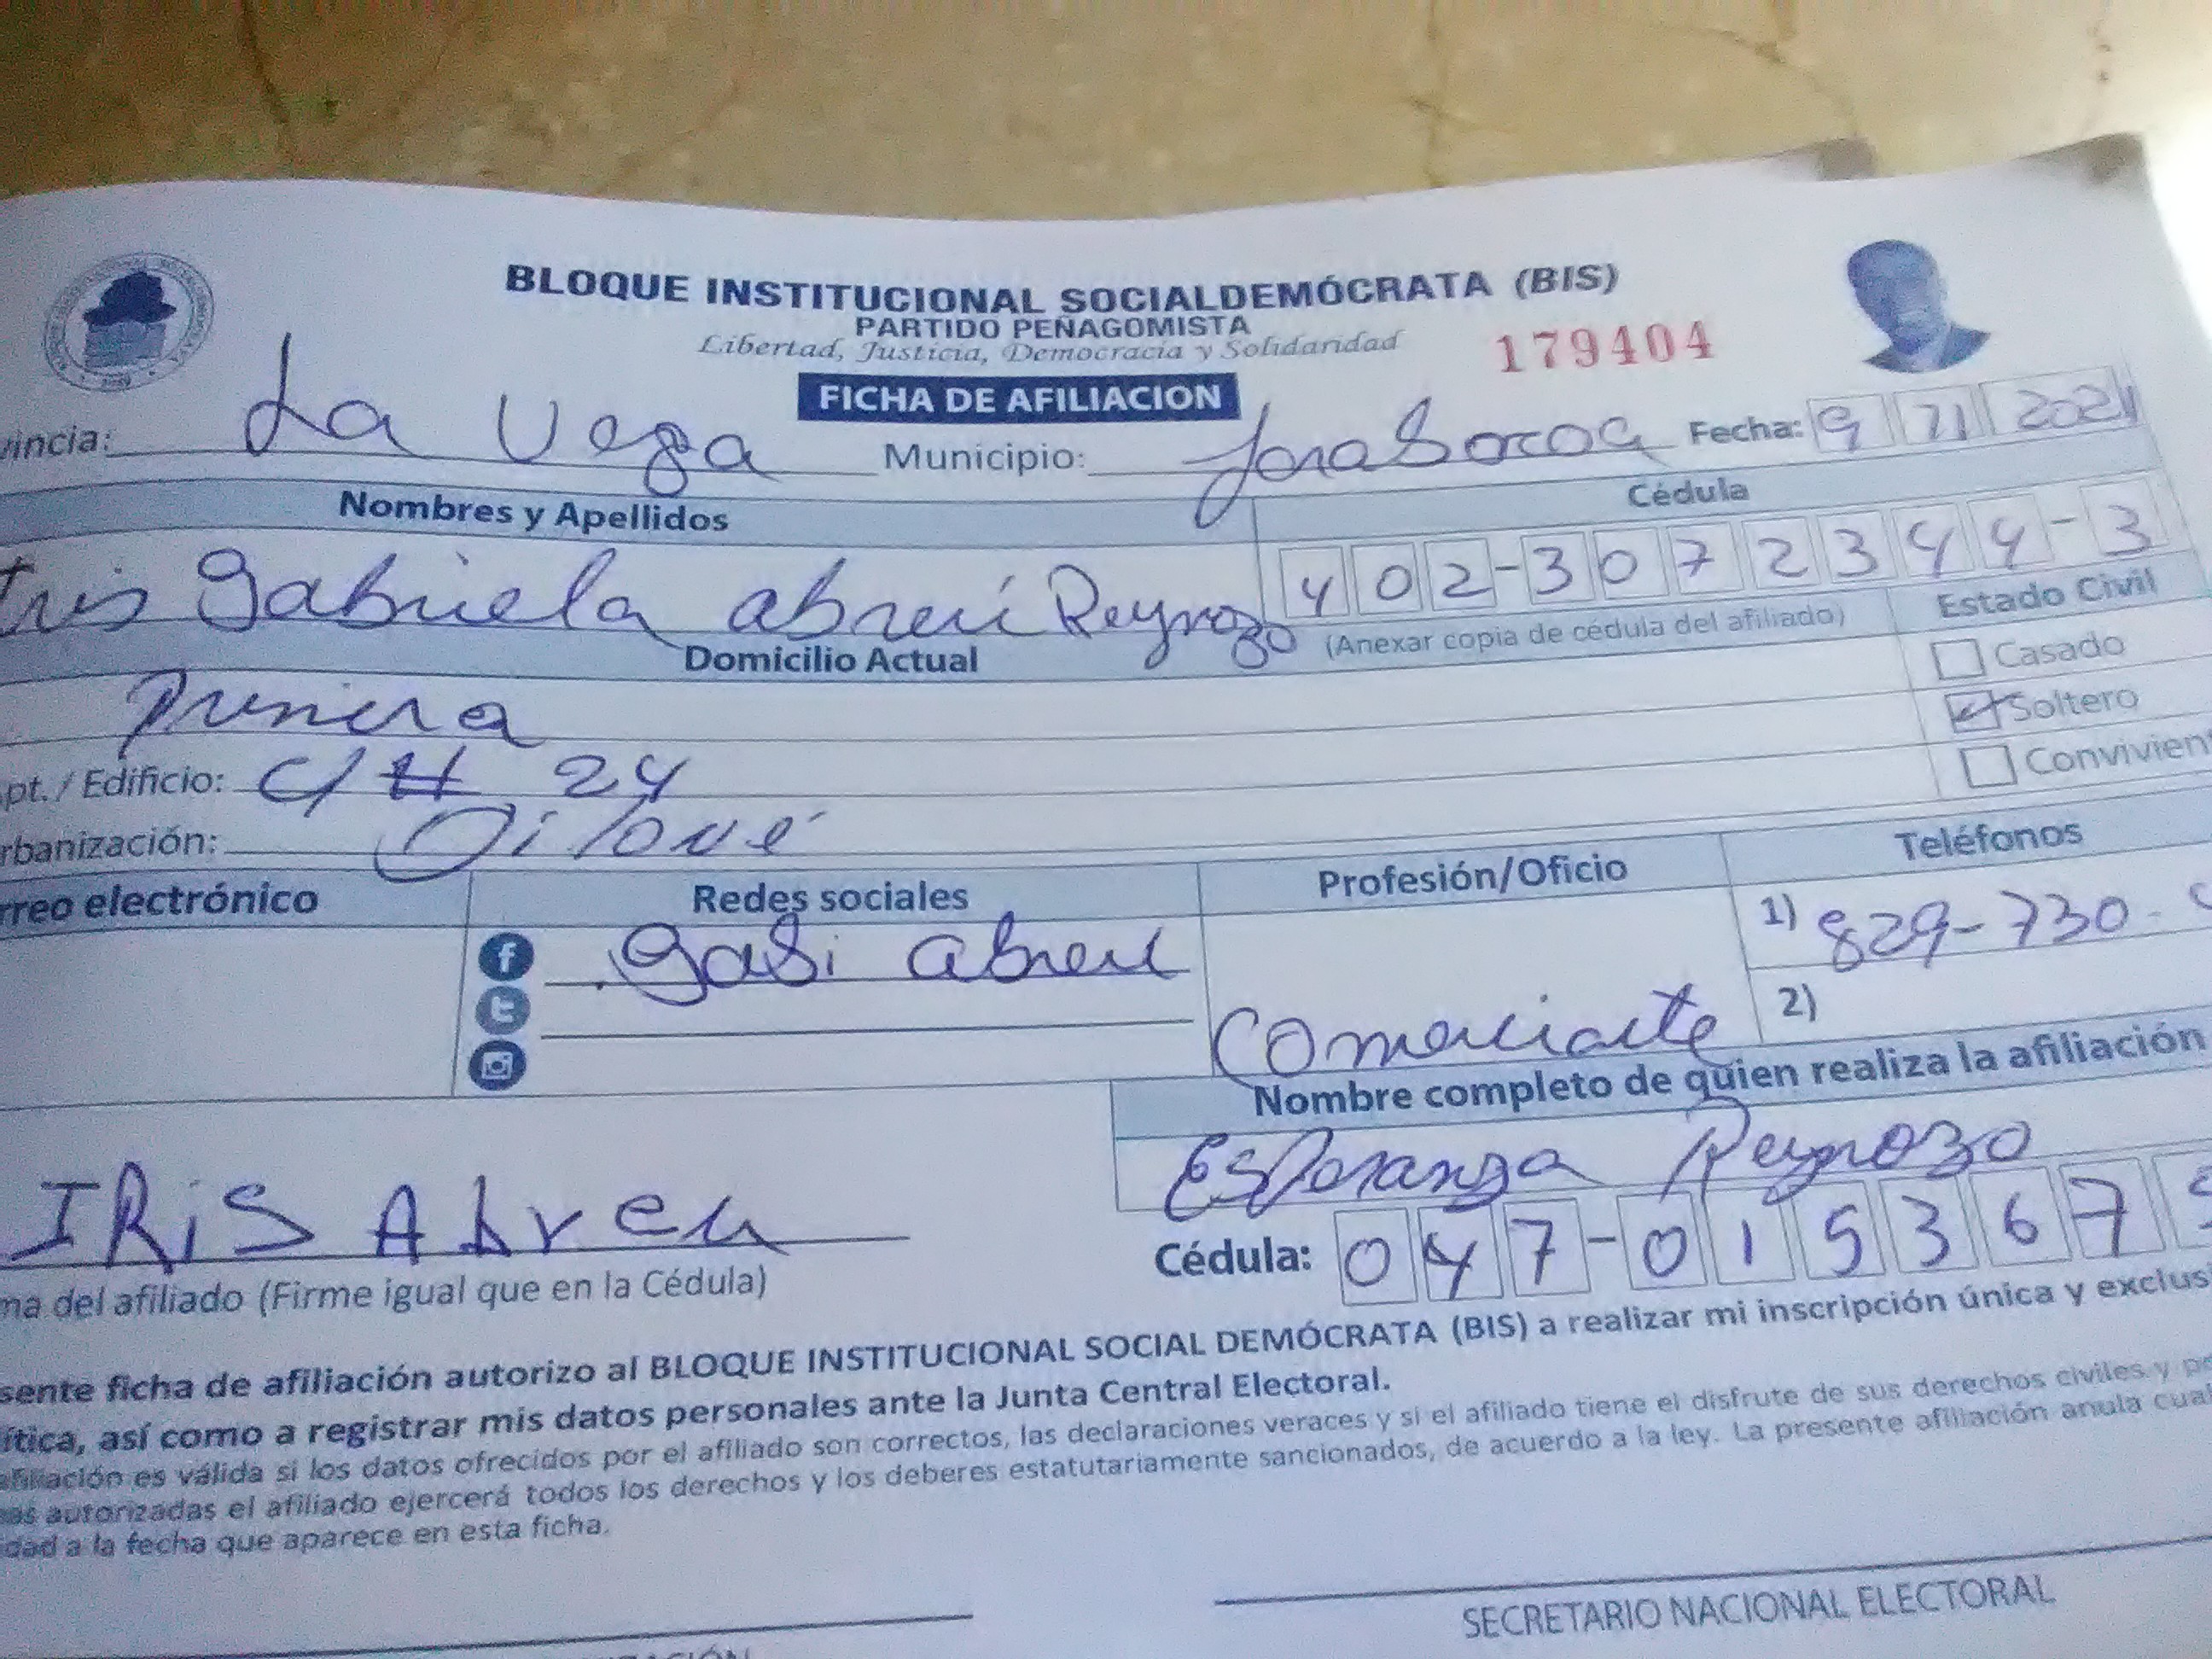 BLOQUE INSTITUCIONAL SOCIALDEMÓCRATA (BIS)
PARTIDO PEÑAGOMISTA
Libertad, Justicia, Democracia y Solidaridad
179404
FICHA DE AFILIACION
vincia: La Vega Municipio: Fecha: 9 11 2021
Nombres y Apellidos Cédula
Iris Gabriela Abreu Reynozo 402-3072344-3
Domicilio Actual (Anexar copia de cédula del afiliado) Estado Civil
Primera Casado
Soltero
pt. / Edificio: C/ # 24 Convivien
rbanización:
rreo electrónico Redes sociales Profesión/Oficio Teléfonos
Gabi Abreu 1) 829-730-
Comerciante 2)
Nombre completo de quien realiza la afiliación
Esperanza Reynozo
IRiS Abreu
Cédula: 047-015367
ma del afiliado (Firme igual que en la Cédula)
sente ficha de afiliación autorizo al BLOQUE INSTITUCIONAL SOCIAL DEMÓCRATA (BIS) a realizar mi inscripción única y exclus
ítica, así como a registrar mis datos personales ante la Junta Central Electoral.
afiliación es válida si los datos ofrecidos por el afiliado son correctos, las declaraciones veraces y si el afiliado tiene el disfrute de sus derechos civiles y
as autorizadas el afiliado ejercerá todos los derechos y los deberes estatutariamente sancionados, de acuerdo a la ley. La presente afiliación anula cual
dad a la fecha que aparece en esta ficha.
SECRETARIO NACIONAL ELECTORAL